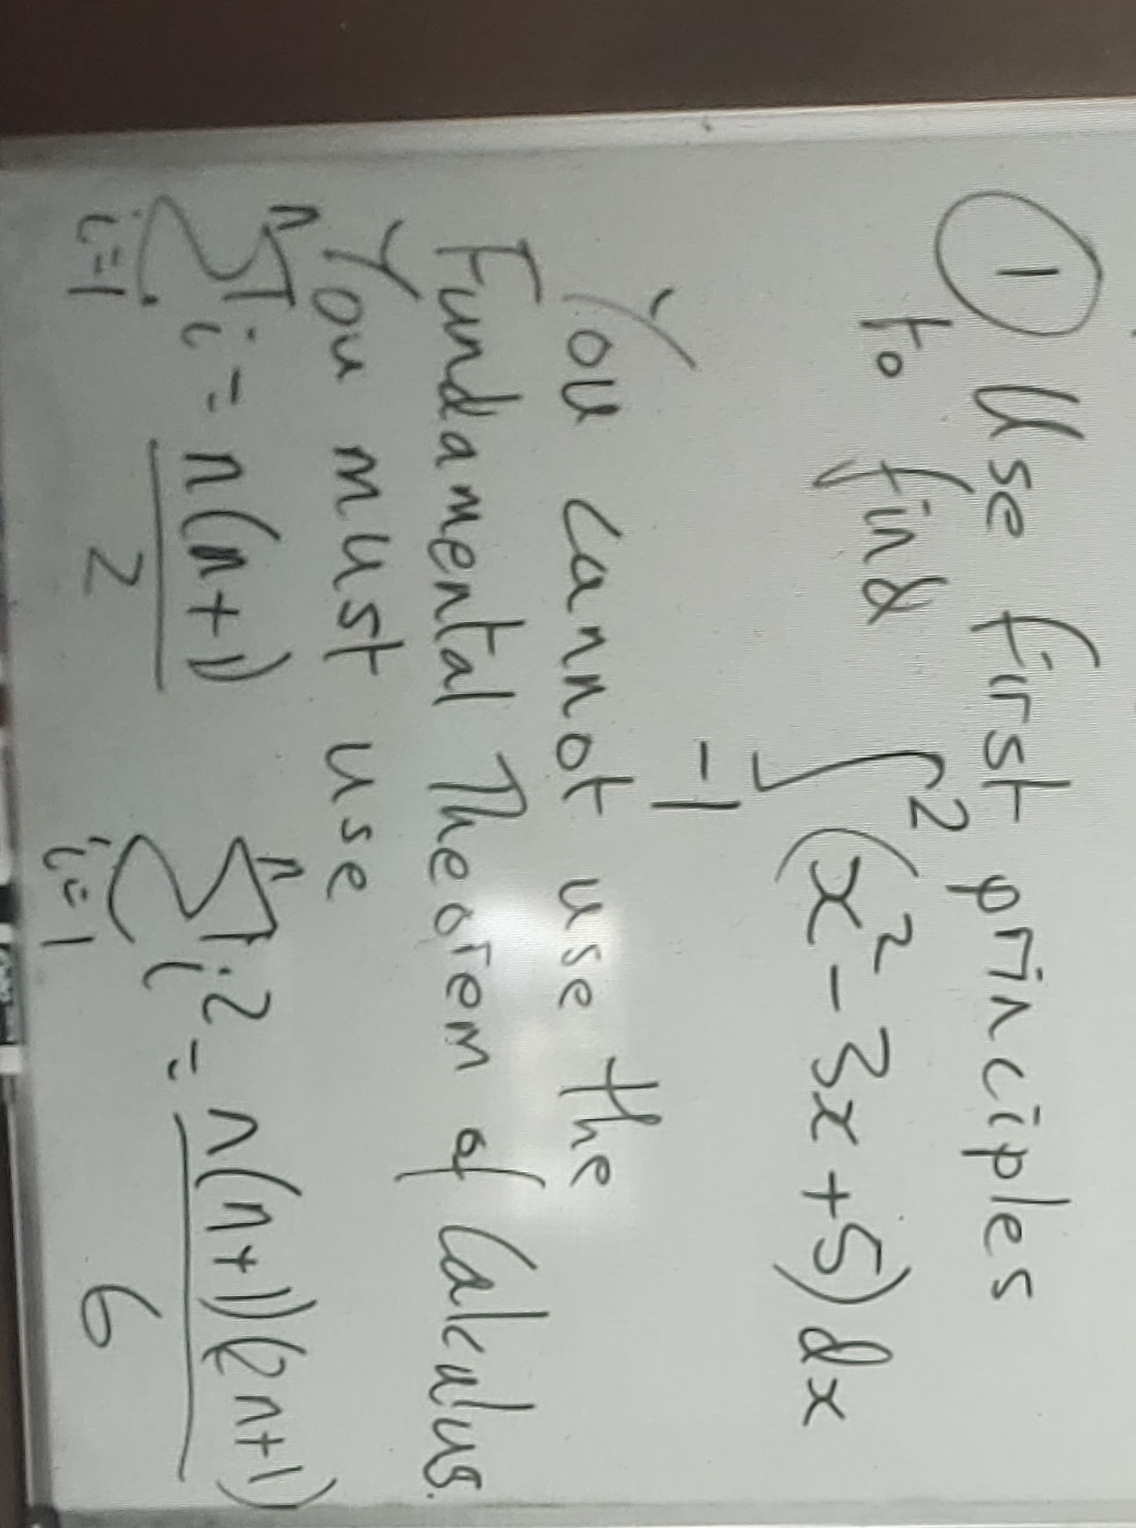 ① Use first principles
to find ∫₋₁² (x² - 3x + 5) dx
You cannot use the
Fundamental Theorem of Calculus.
You must use
∑ᵢ₌₁ⁿ i = n(n+1)/2   ∑ᵢ₌₁ⁿ i² = n(n+1)(2n+1)/6